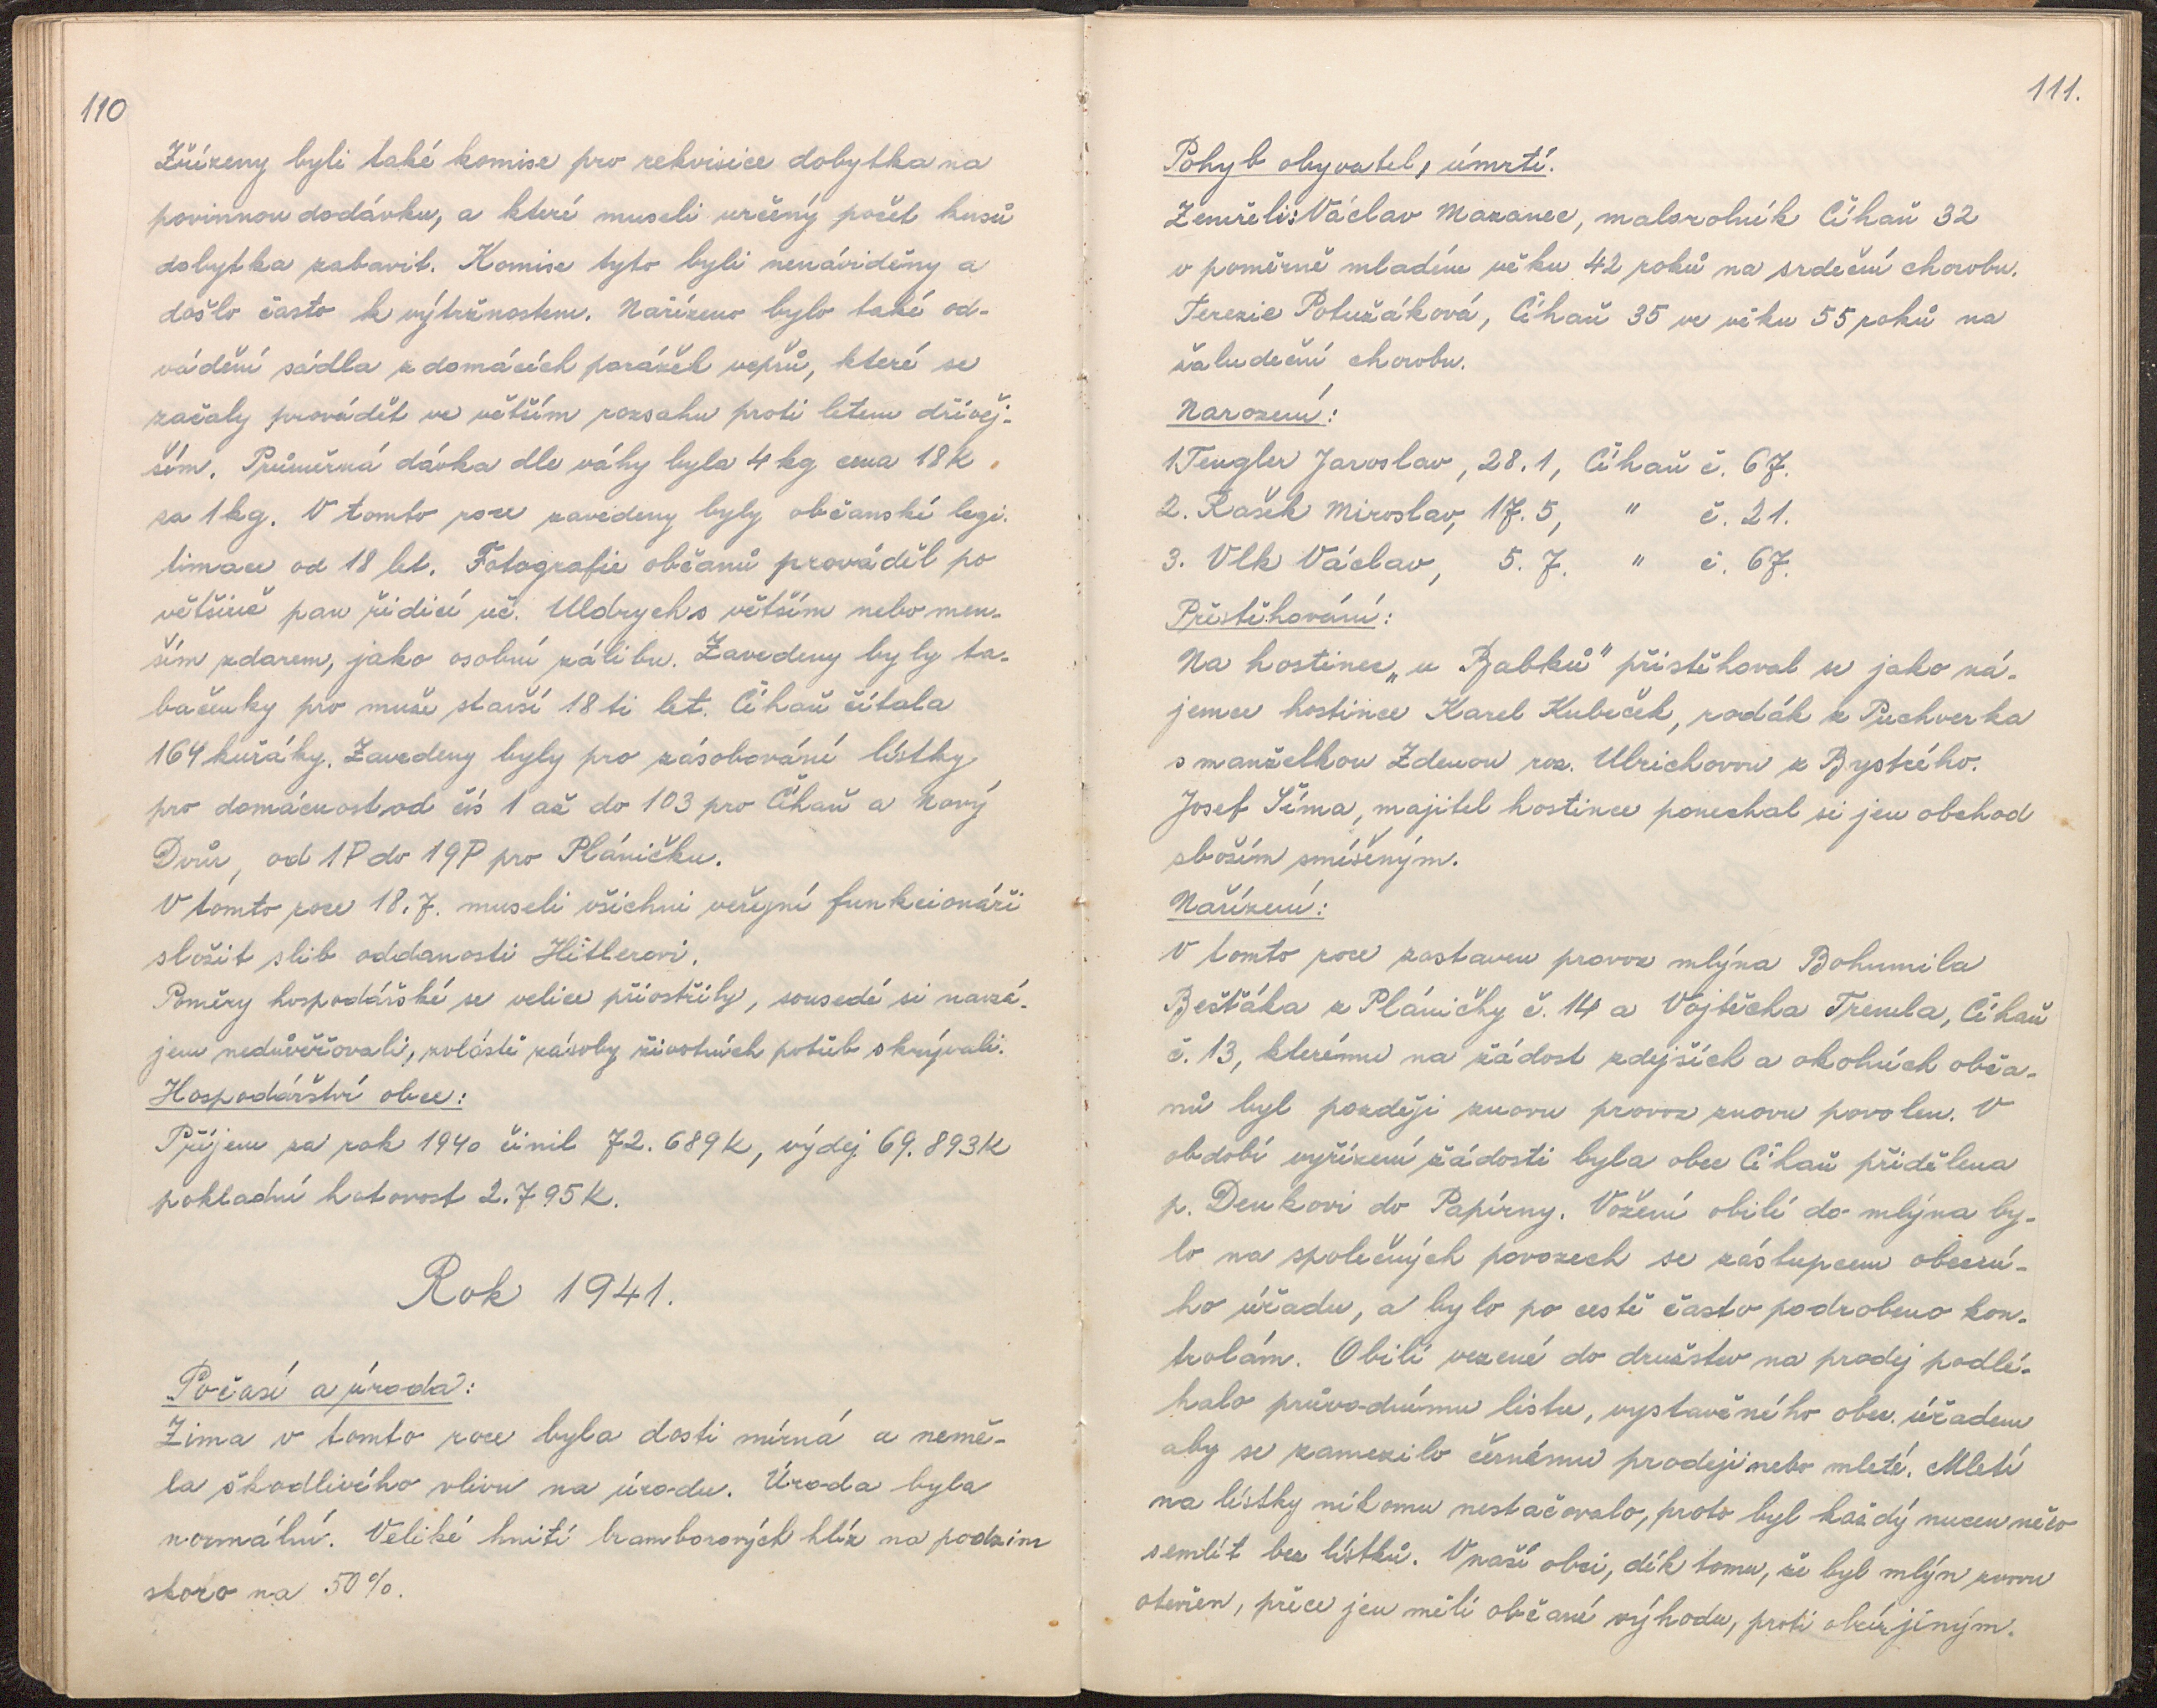 110
Zřízeny byli také komise pro rekvisice dobytka na
povinnou dodávku, a které museli určený počet kusů
dobytka zabavit. Komise tyto byli nenáviděny a
došlo často k výtržnostem. Nařízeno bylo také od-
vádění sádla z domácích porážek vepřů, které se
začaly provádět ve větším rozsahu proti letem dřívěj-
ším. Průměrná dávka dle váhy byla 4 kg cena 18 K
za 1 kg. V tomto roce zavedeny byly občanské legi-
timace od 18 let. Fotografie občanů prováděl po
většině pan řidicí uč. Uldrych s větším nebo men-
ším zdarem, jako osobní zálibu. Zavedeny byly ta-
bačenky pro muže starší 18ti let. Číhaň čítala
164 kuřáky. Zavedeny byly pro zásobování lístky
pro domácnost od čís 1 až do 103 pro Číhaň a Nový
Dvůr, od 1P do 19P pro Pláničku.
V tomto roce 18. 7. museli všichni veřejní funkcionáři
složit slib oddanosti Hitlerovi.
Poměry hospodářské se velice přiostřily, sousedé si navzá-
jem nedůvěřovali, zvláště zásoby životních potřeb skrývali.
Hospodářství obce:
Příjem za rok 1940 činil 72.689 K, výdej 69.893 K
pokladní hotovost 2.795 K.
Rok 1941.
Počasí a úroda:
Zima v tomto roce byla dosti mírná a nemě-
la škodlivého vlivu na úrodu. Úroda byla
normální. Veliké hnití bramborových hlíz na podzim
skoro na 50%.
111.
Pohyb obyvatel, úmrtí.
Zemřeli: Václav Mazanec, malorolník Číhaň 32
v poměrně mladém věku 42 roků na srdeční chorobu.
Terezie Potužáková, Číhaň 35 ve věku 55 roků na
žaludeční chorobu.
Narození:
1. Tengler Jaroslav, 28. 1, Číhaň č. 67.
2. Rašek Miroslav, 17. 5, " č. 21.
3. Vlk Václav, 5. 7. " č. 67.
Přestěhování:
Na hostinec „u Babků" přistěhoval se jako ná-
jemce hostince Karel Kubeček, rodák z Puchverka
s manželkou Zdenou roz. Ulrichovou z Bystrého.
Josef Šíma, majitel hostince ponechal si jen obchod
sbožím smíšeným.
Nařízení:
V tomto roce zastaven provoz mlýna Bohumila
Bešťáka z Pláničky č. 14 a Vojtěcha Tremla, Číhaň
č. 13, kterému na žádost zdejších a okolních obča-
nů byl později znovu provoz znovu povolen. V
období vyřízení žádosti byla obec Číhaň přidělena
p. Denkovi do Papírny. Vožení obilí do mlýna by-
lo na společných povozech se zástupcem obecní-
ho úřadu, a bylo po cestě často podrobeno kon-
trolám. Obilí vezené do družstev na prodej podlé-
halo průvodnímu listu, vystavěného obec. úřadem
aby se zamezilo černému prodeji nebo mletí. Mletí
na lístky nikomu nestačovalo, proto byl každý nucen něco
semlít bez lístků. V naší obci, dík tomu, že byl mlýn znovu
otevřen, přece jen měli občané výhodu, proti obcím jiným.